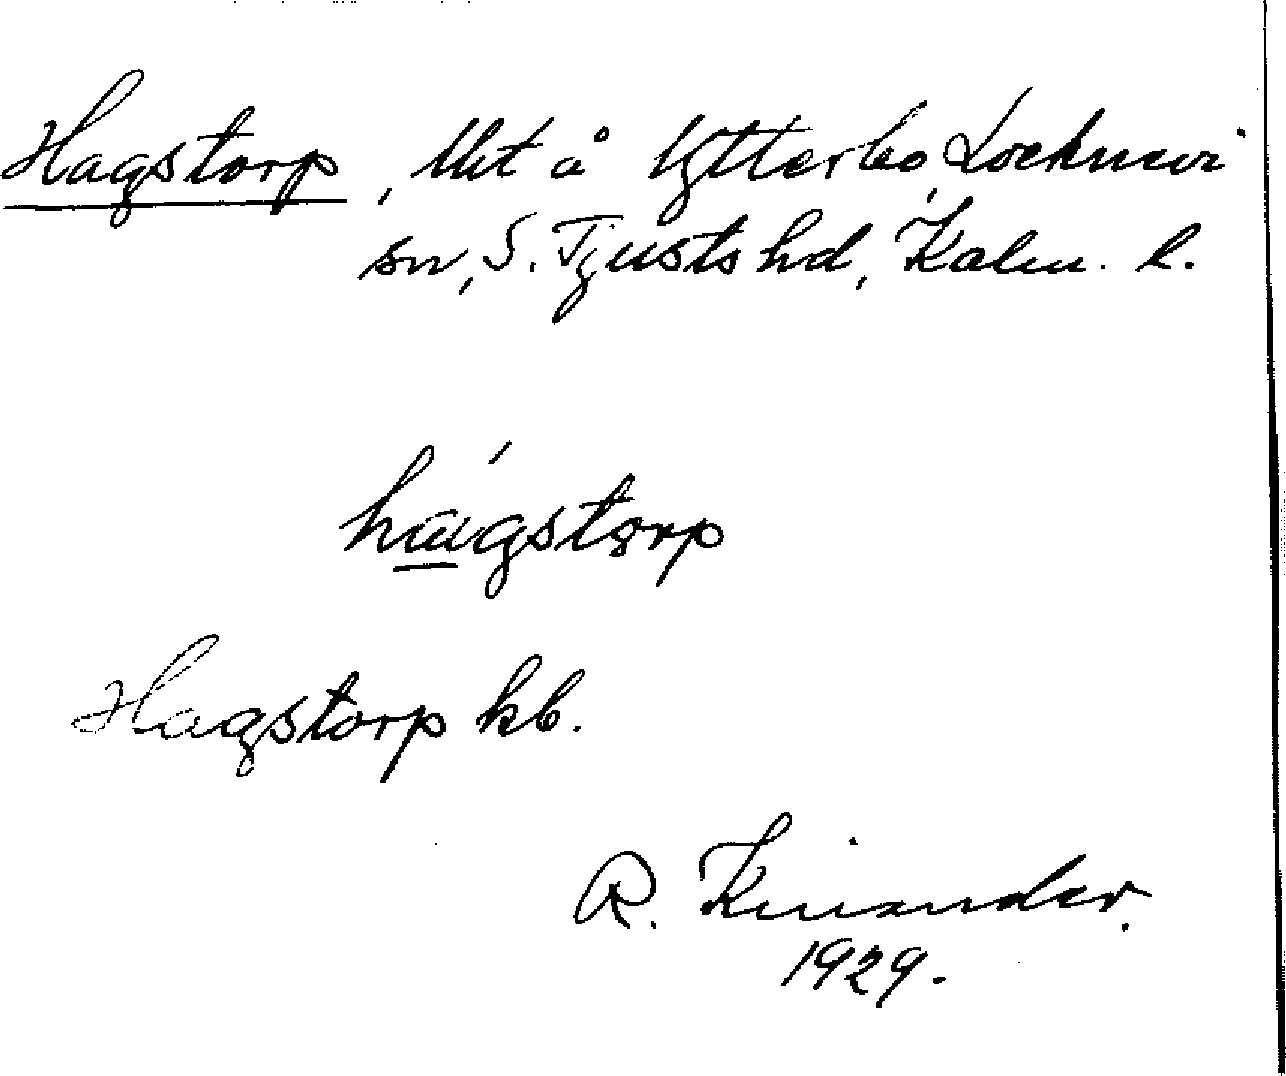 Hagstorp, lht å Ytterbo, Locknevi
sn, S. Tjusts hd, Kalm. l.
hágstorp
Hagstorp kb.
R. Kinander.
1929.